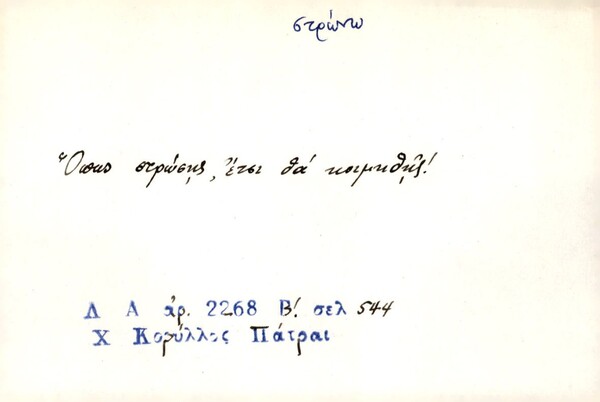 στρώνω
Ὅπως στρώσῃς, ἔτσι θά κοιμηθῇς!
Λ Α ἀρ. 2268 Β! σελ 544
Χ Κορύλλος Πάτραι